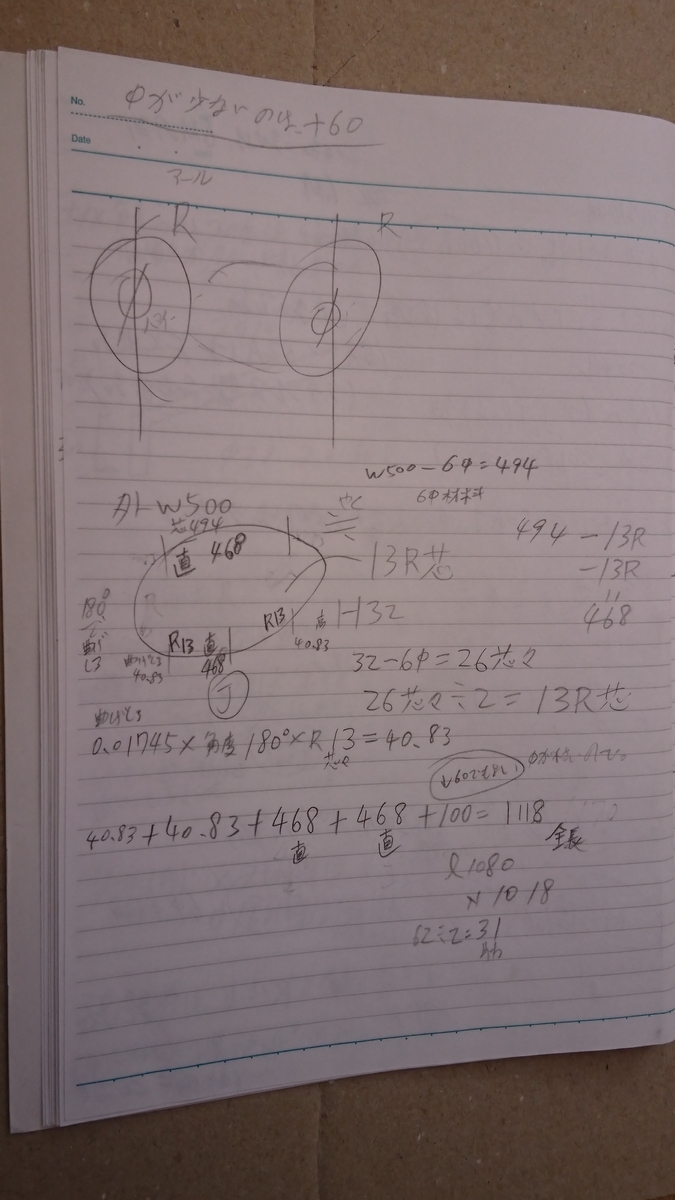 No. Φが少ないのは+60
Date
アール
R R
Φ Φ
W500-6Φ=494
6Φ材料
外W500
芯494
直 468
13R芯
494-13R
-13R
=
468
180°
曲げ
R13 直
468
R13
40.83
H32
曲げ
40.83
32-6Φ=26芯々
J
26芯々÷2=13R芯
0.01745×角度180°×R13=40.83
芯
+60でも
40.83+40.83+468+468+100=1118
直 直 全長
l 1080
1018
62÷2=31